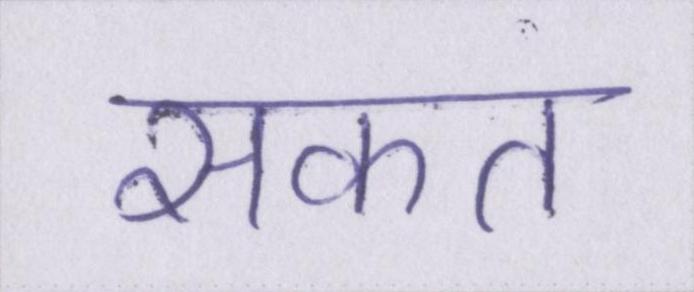 सकत